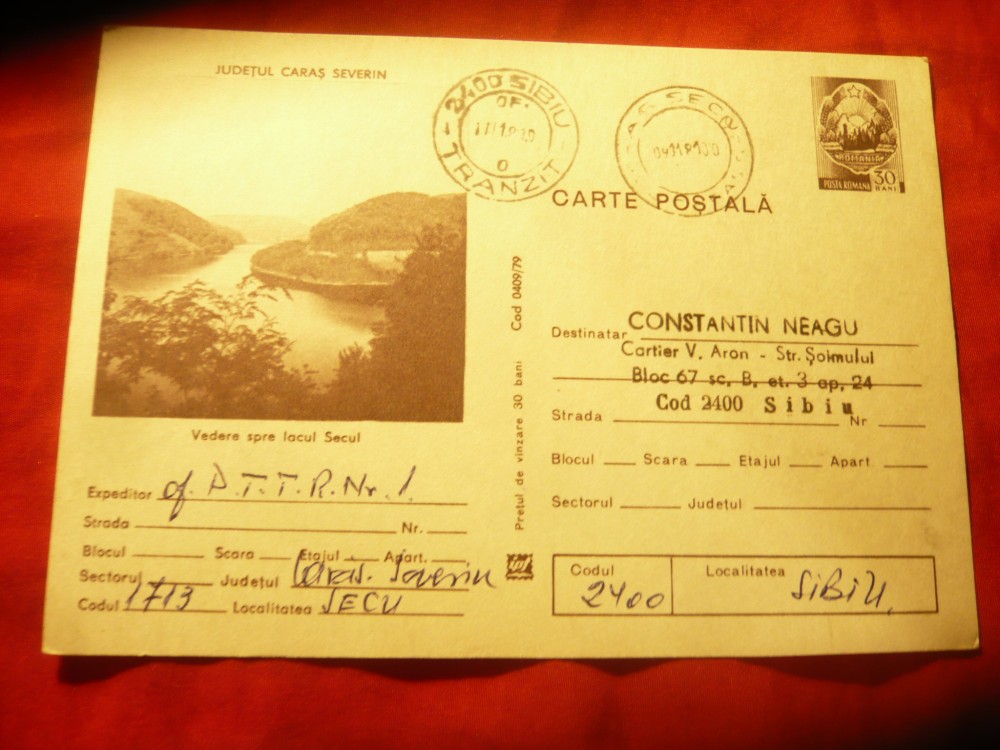 JUDEȚUL CARAȘ SEVERIN
2400 SIBIU
OF.
0
TRANZIT
ROMANIA
POSTA ROMANA 30 BANI
CARTE POȘTALĂ
Vedere spre lacul Secul
Expeditor of. P.T.T.R. Nr. 1.
Strada Nr.
Blocul Scara Etajul Apart.
Sectorul Județul Caraș. Severin
Codul 1713 Localitatea SECU
Prețul de vînzare 30 bani Cod 0409/79
Destinatar CONSTANTIN NEAGU
Cartier V. Aron - Str. Șoimului
Bloc 67 sc. B, et. 3 ap, 24
Cod 2400 Sibiu
Strada Nr
Blocul Scara Etajul Apart.
Sectorul Județul
Codul 2400
Localitatea SIBIU.